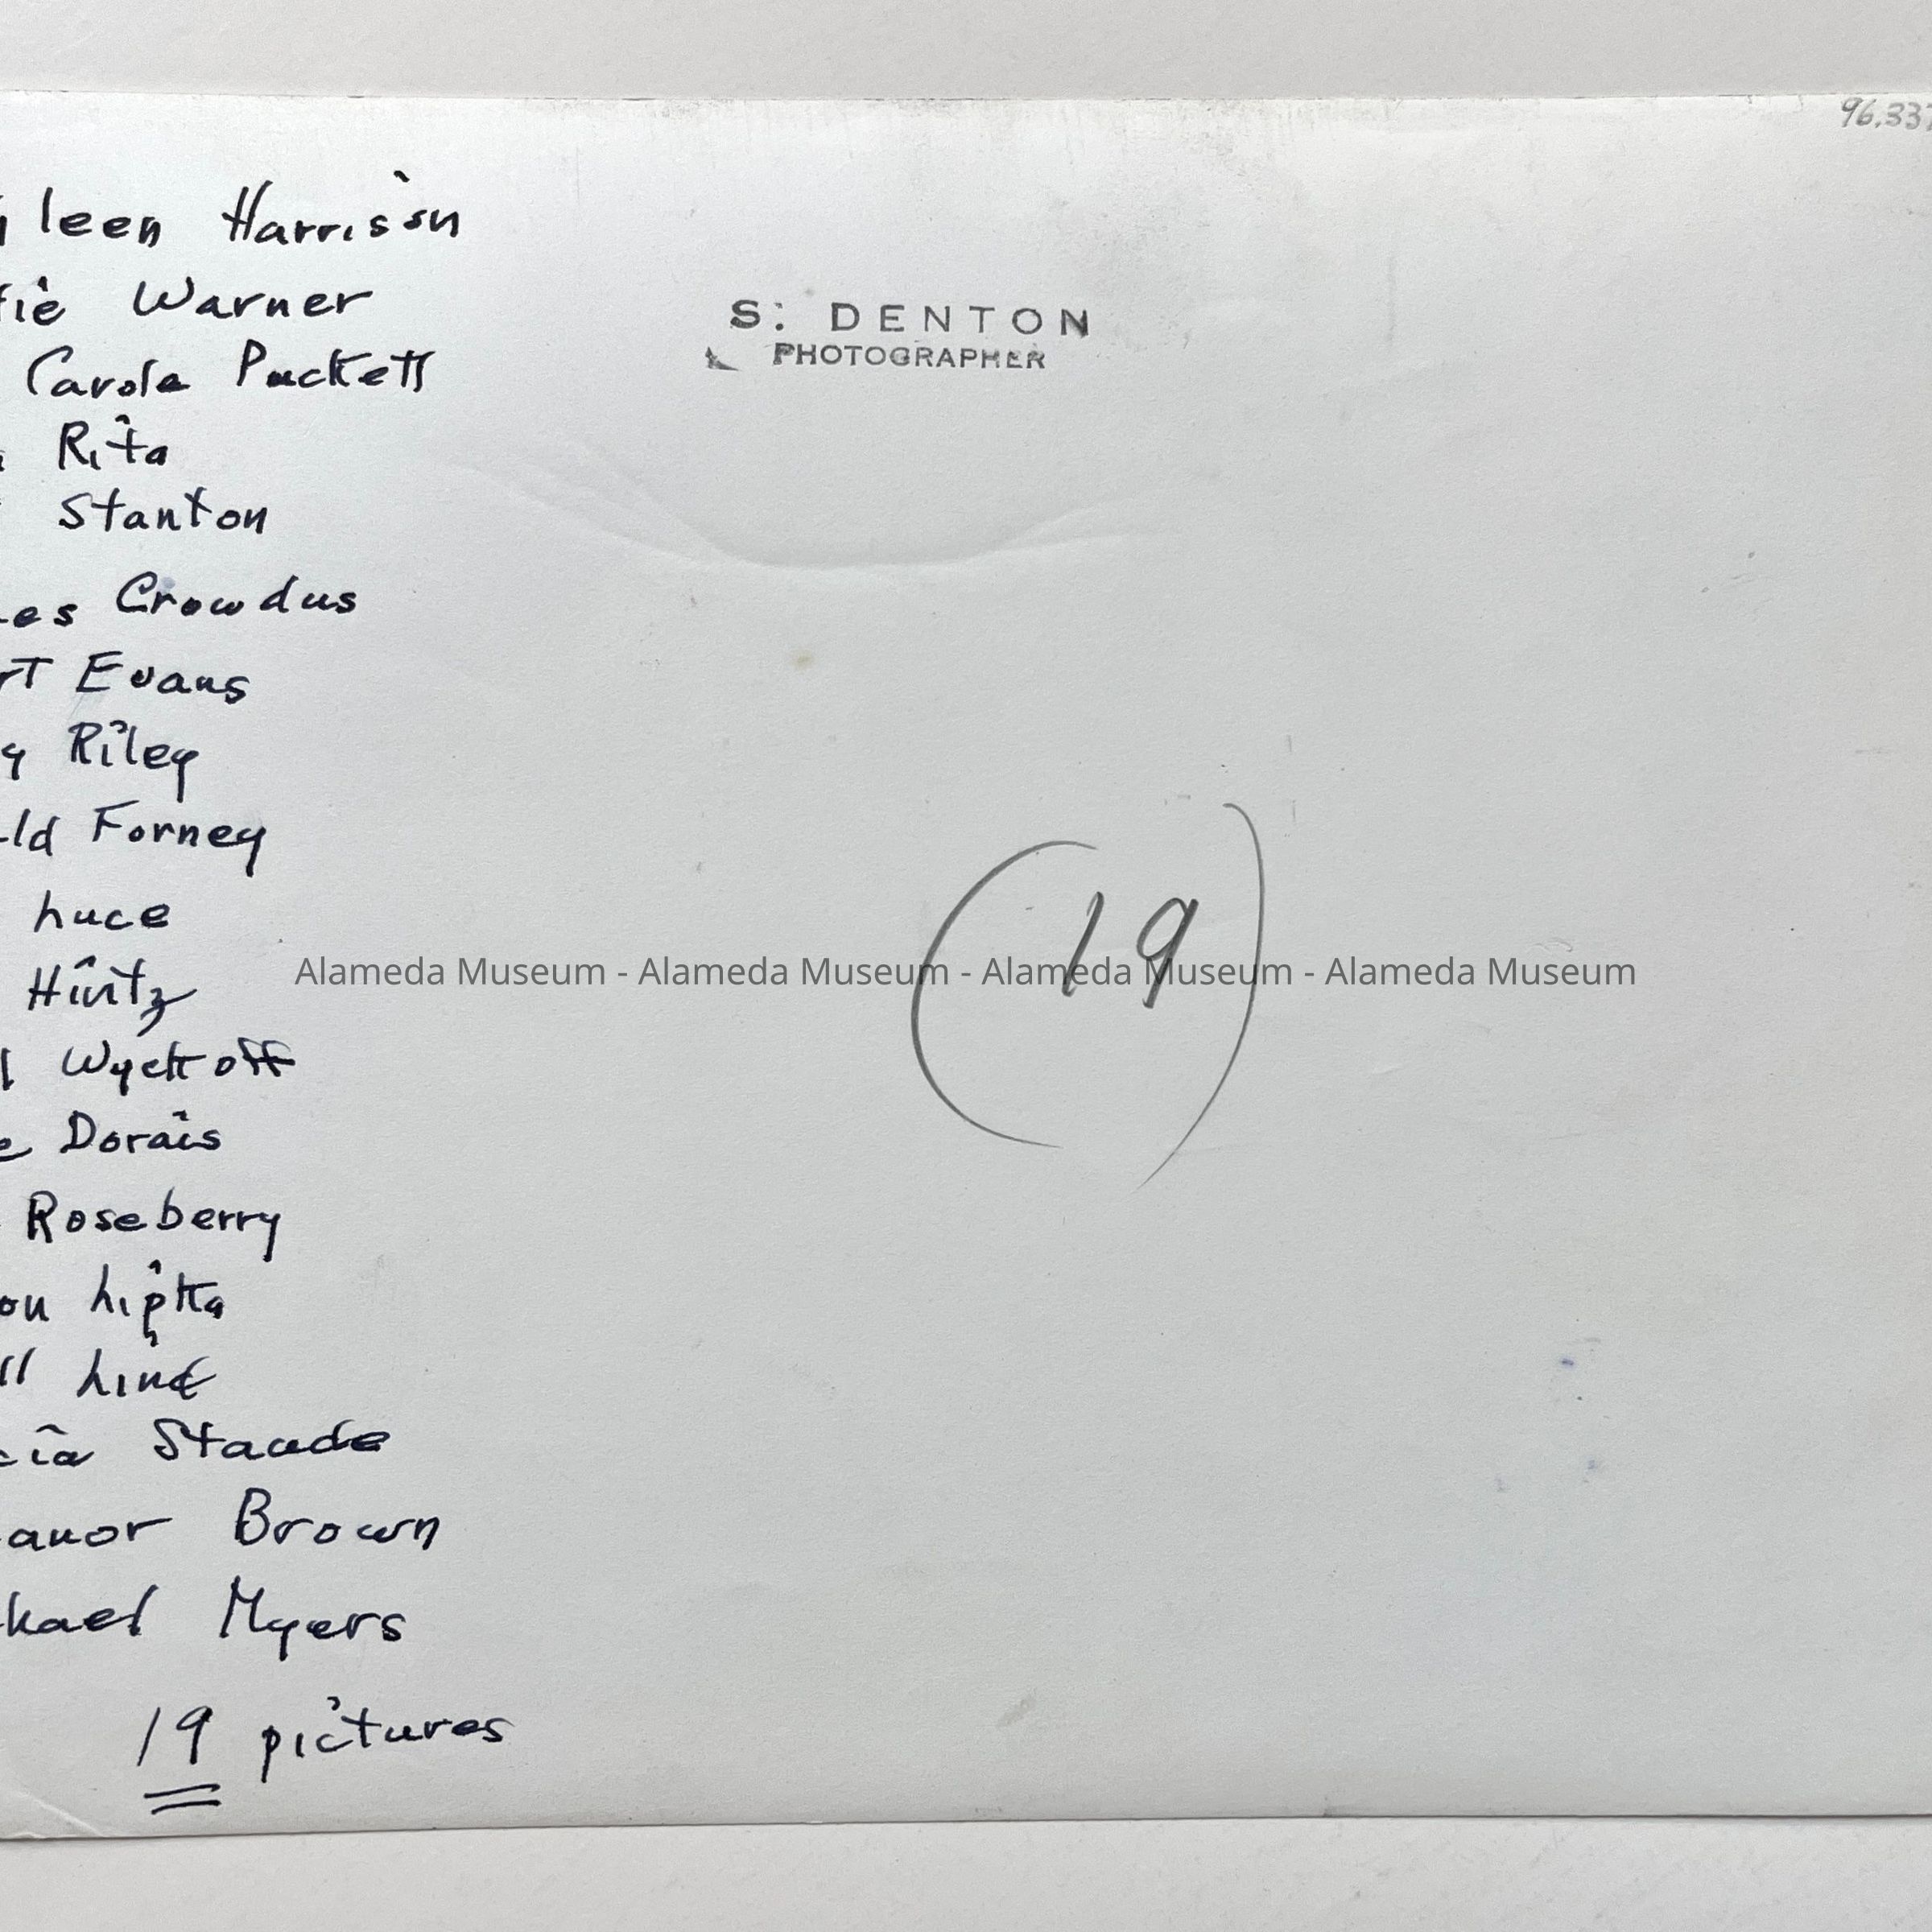 96.337
leen Harrison
fie Warner
Carole Puckett
Rita
Stanton
es Crowdus
rt Evans
y Riley
ld Forney
Luce
Hintz
Wyckoff
e Dorais
Roseberry
on Lipka
ll Lind
cia Staude
anor Brown
hael Myers
19 pictures
S. DENTON
PHOTOGRAPHER
(19)
Alameda Museum - Alameda Museum - Alameda Museum - Alameda Museum